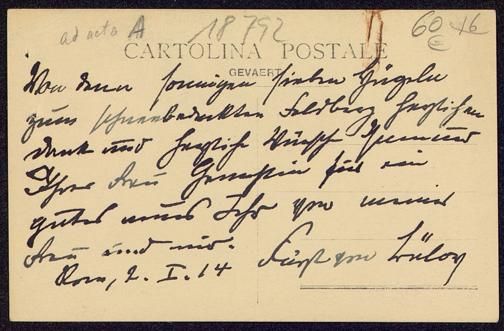 ad acta A
18792
60 16
CARTOLINA POSTALE
GEVAERT
Von den sonnigen sieben Hügeln
zum schneebedeckten Feldberg herzlichen
Dank und herzliche Wünsche Ihnen und
Ihrer Frau Gemahlin für ein
gutes neues Jahr von meiner
Frau und mir.
Rom, 2. I. 14 Fürst von Bülow